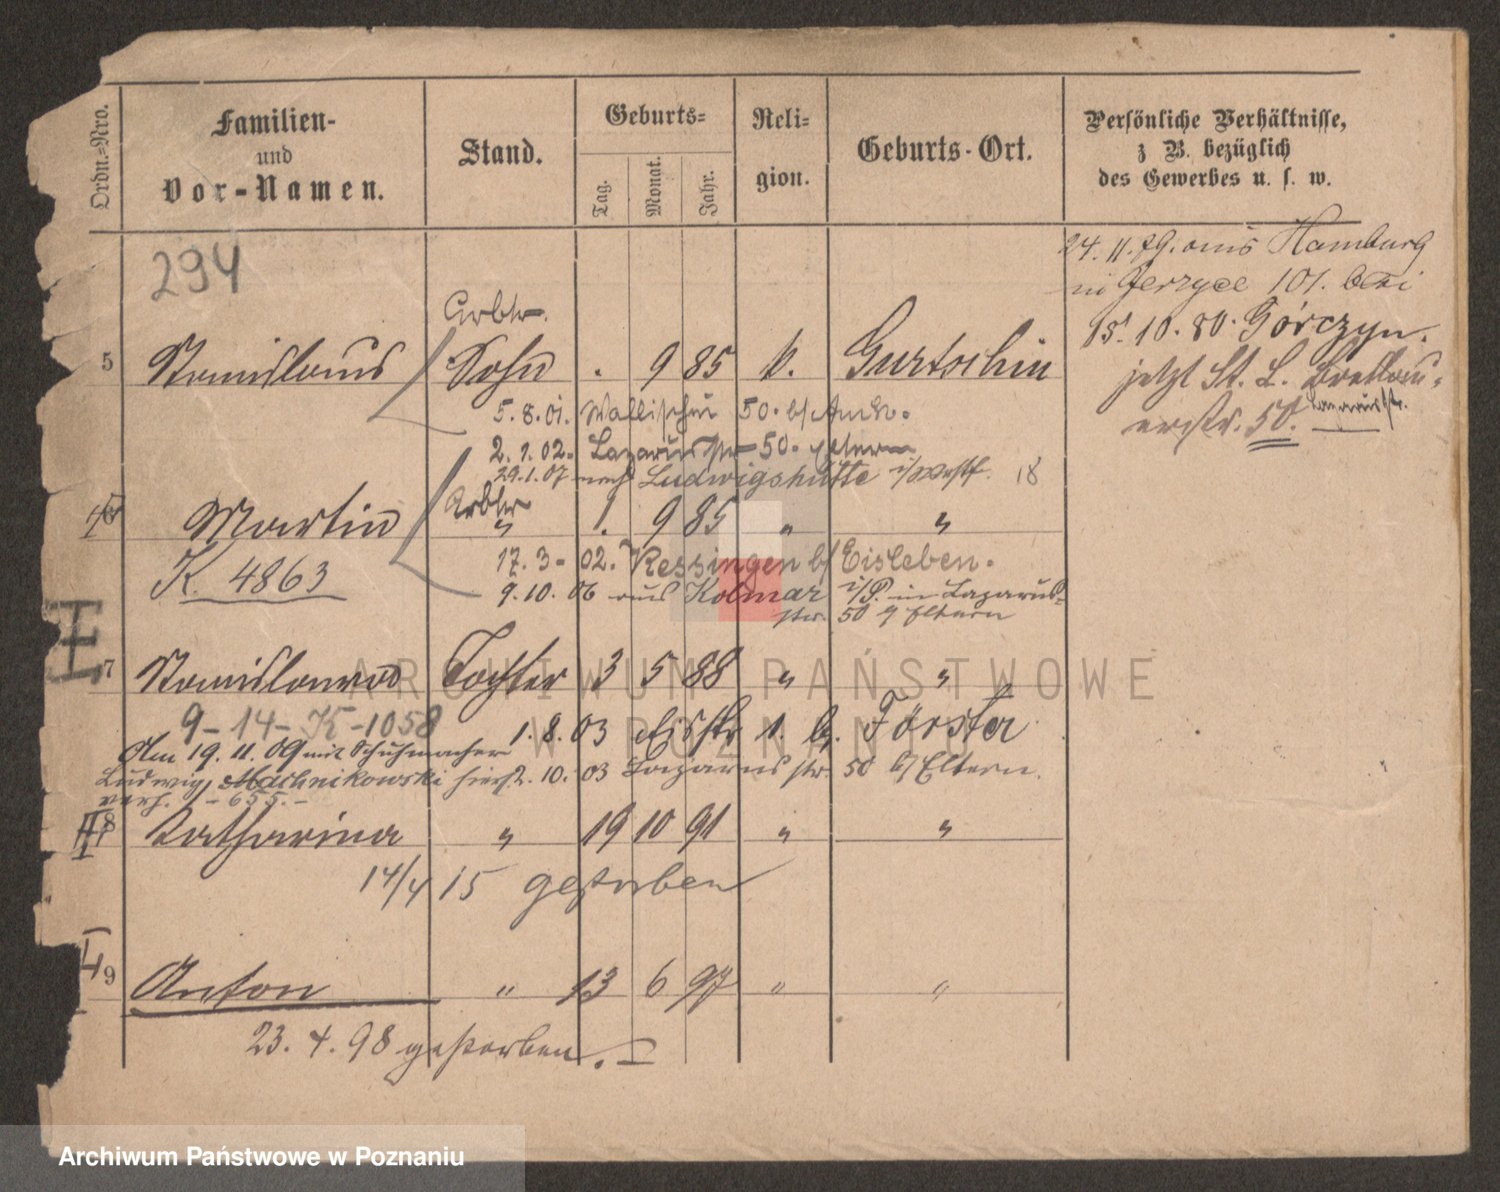 Ordn.-Nro.
Familien-
und
Vor-Namen.
Stand.
Geburts-
Tag. Monat. Jahr.
Reli-
gion.
Geburts-Ort.
Persönliche Verhältnisse,
z B. bezüglich
des Gewerbes u. s. w.
24. 11. 79. aus Hamburg
in Jerzyce 101. bei
15. 10. 80. Górczyn.
jetzt St. L. Breslau-
erstr. 50. Lazarusstr.
294
Arbtr.
5 Stanislaus Sohn . 9 85 k. Gurtschin
5. 8. 01. Wallischei 50. b/
2. 1. 02. Lazarusstr 50. Eltern
29. 1. 07 nach Ludwigshütte i/Westf. 18
Arbtr
6 Martin " 1. 9 85 " "
K. 4863
17. 3 - 02. b/ Eisleben.
9. 10. 06 aus Kolmar i/P. in Lazarus-
str. 50 b/ Eltern
7 Stanislawa Tochter 3 5 88 " "
9 - 14 - K - 1058
1. 8. 03 1. b. Förster
Am 19. 11. 09 mit Schuhmacher
Ludwig Machnikowski hier
verh. - 655. -
2. 10. 03 Lazarusstr. 50 b/ Eltern.
8 Katharina " 19 10 91 " "
14/4 15 gestorben
9 Anton " 13 6 97 " "
23. 4. 98 gestorben.
ARCHIWUM PAŃSTWOWE
W POZNANIU
Archiwum Państwowe w Poznaniu